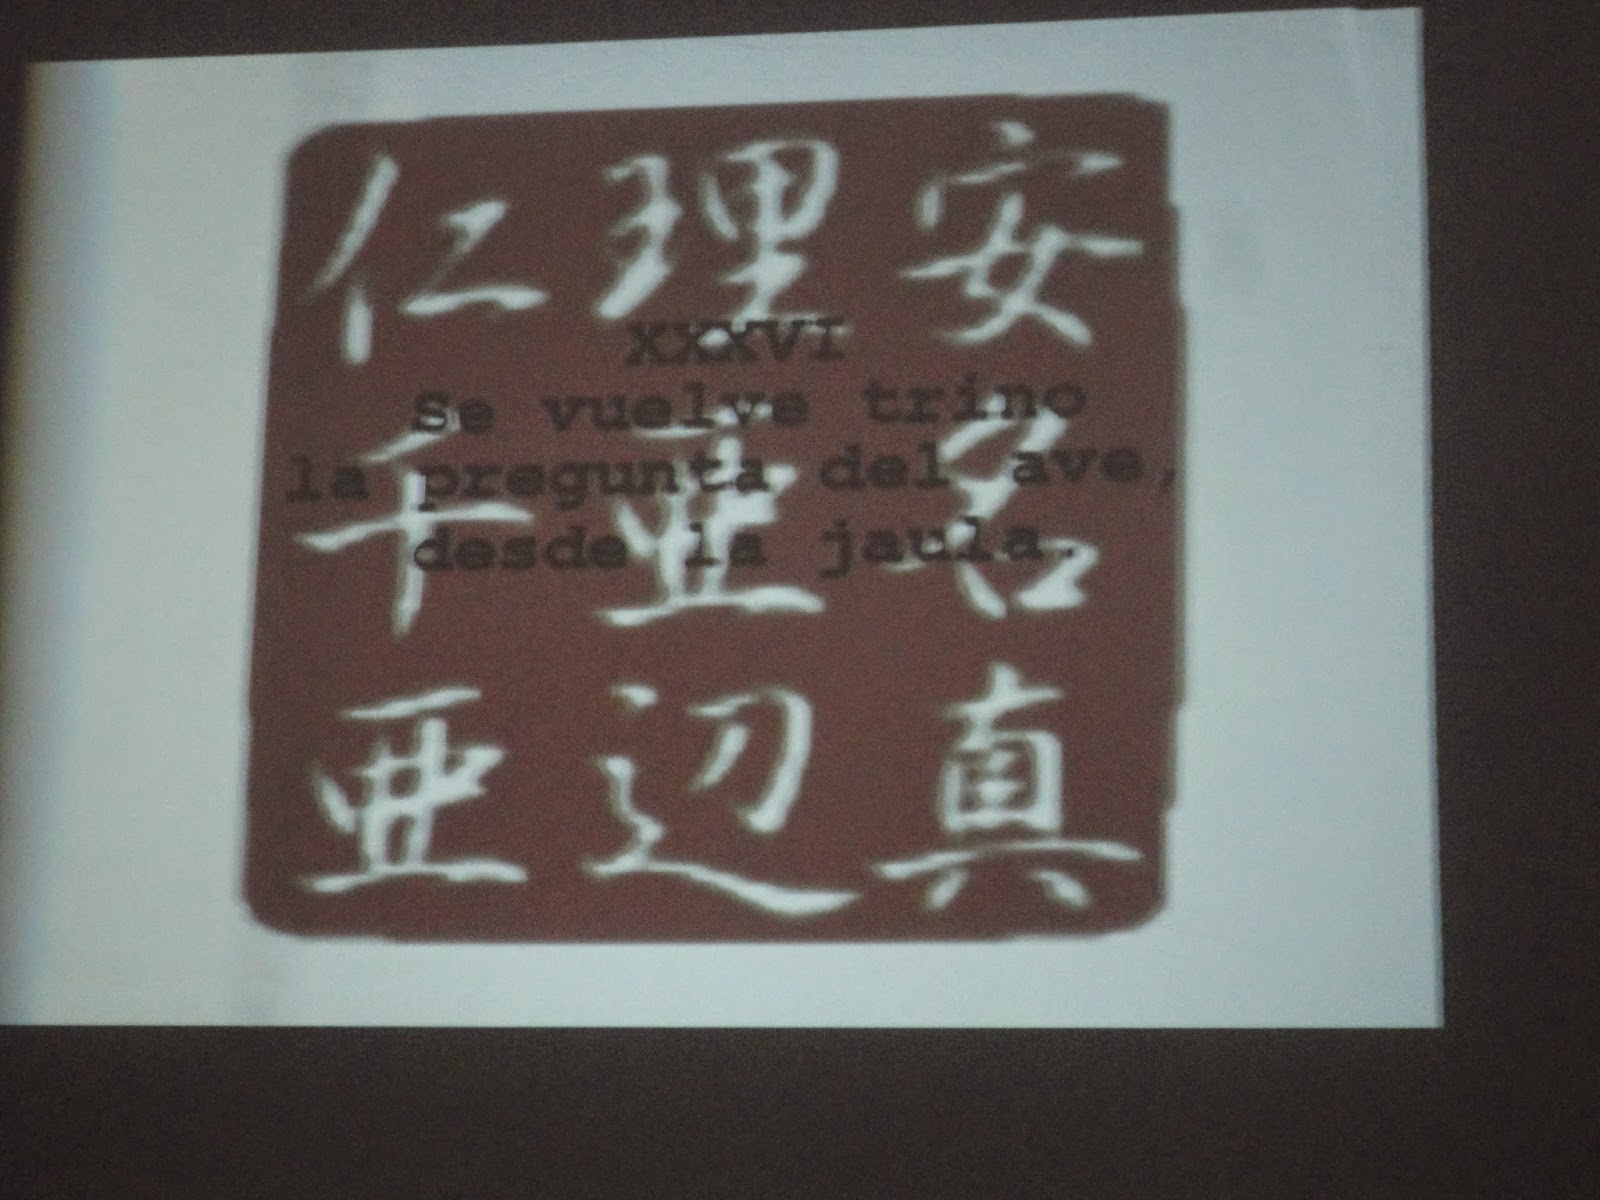 安名真
理亜辺
仁千亜
XXXVI
Se vuelve trino
la pregunta del ave,
desde la jaula.